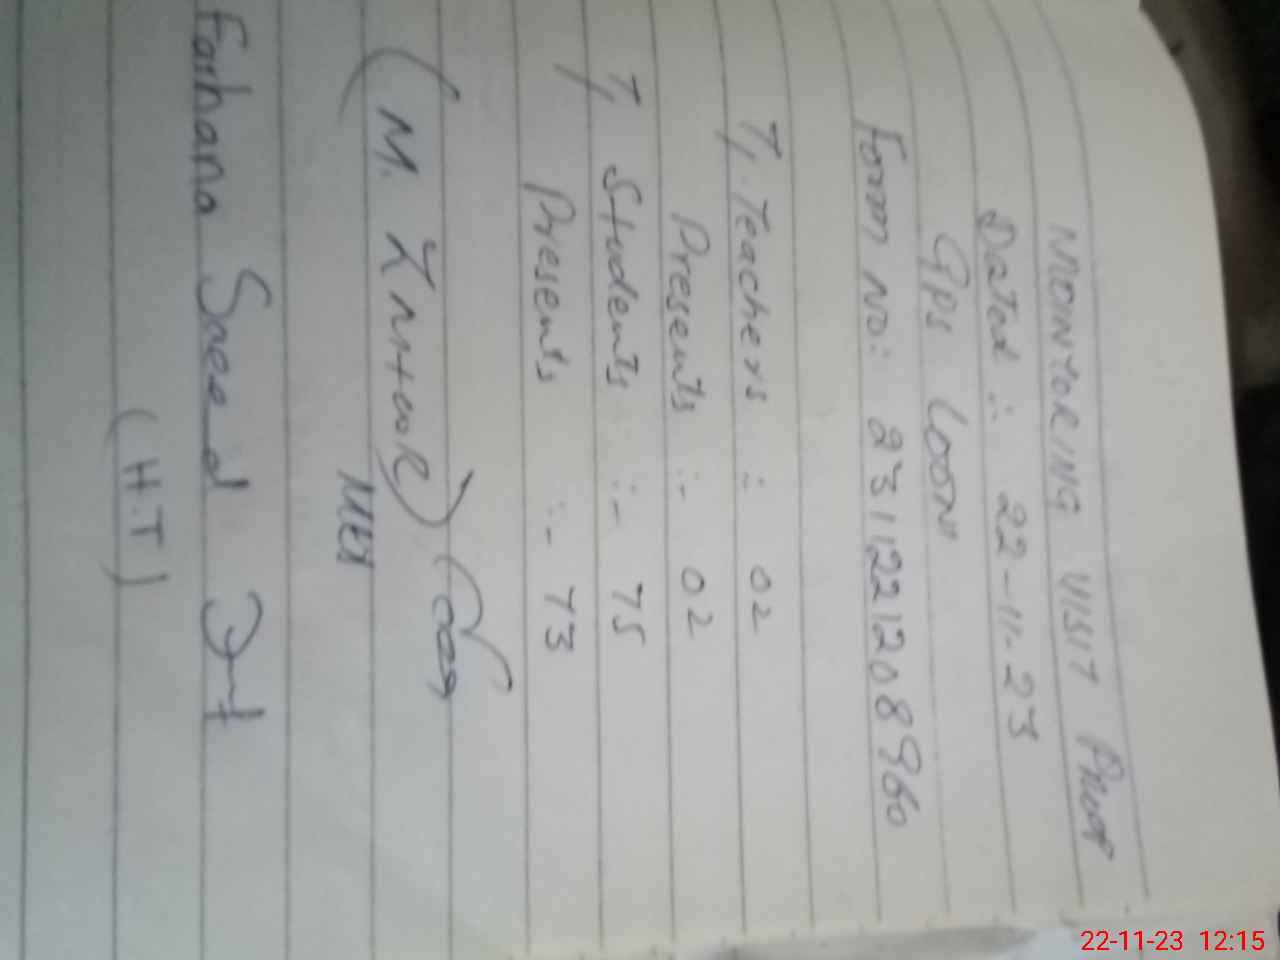 MOINTORING VISIT PROOF
Dated :. 22-11-23
GPS LOON
Form No: 2311221208960
T, Teachers :. 02
Presents :- 02
T, Students :- 75
Presents :- 73
(M. )
MEA
Farhana Saeed
(H.T)
22-11-23 12:15